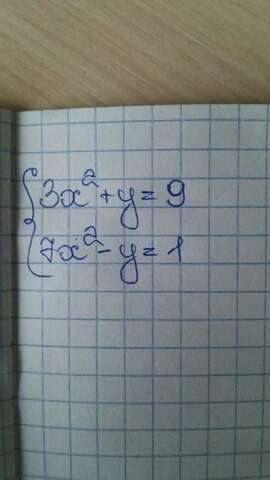 3x² + y = 9
7x² - y = 1